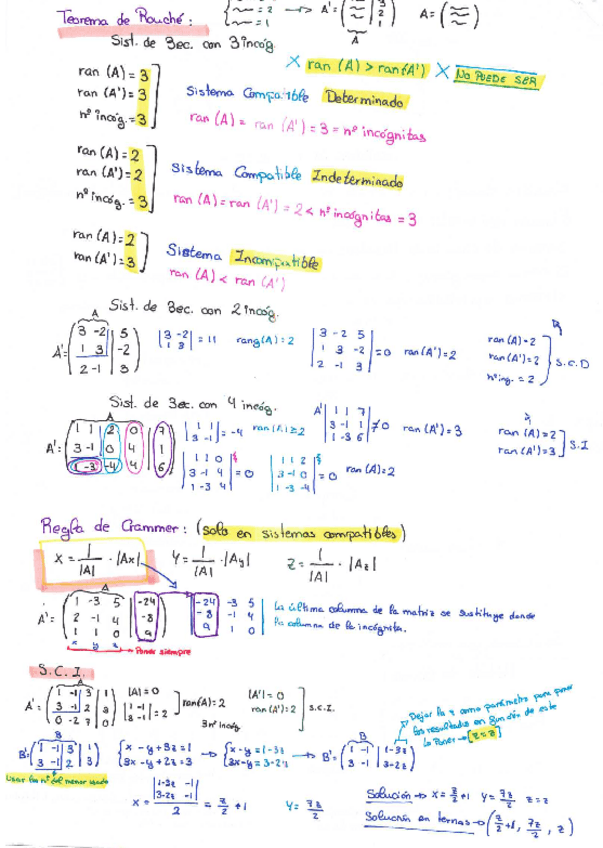 Teorema de Rouché:
Sist. de 3ec. con 3 incóg.
A'= A=( )
A
X ran (A) > ran (A') X NO PUEDE SER
ran (A) = 3
ran (A') = 3
nº incóg. = 3
Sistema Compatible Determinado
ran (A) = ran (A') = 3 = nº incógnitas
ran (A) = 2
ran (A') = 2
nº incóg. = 3
Sistema Compatible Indeterminado
ran (A) = ran (A') = 2 < nº incógnitas = 3
ran (A) = 2
ran (A') = 3
Sistema Incompatible
ran (A) < ran (A')
Sist. de 3ec. con 2 incóg.
A
A'= 3 -2 | 5
1 3 | -2
2 -1 | 3
|3 -2
1 3| = 11 rang(A) = 2
|3 -2 5
1 3 -2
2 -1 3| = 0 ran (A') = 2
ran (A) = 2
ran (A') = 2
nº ing. = 2
S.C.D
Sist. de 3ec. con 4 incóg.
A
A'= 1 1 2 0 | 7
3 -1 0 4 | 1
1 -3 -4 4 | 6
|1 1
3 -1| = -4 ran (A) ≥ 2
A' |1 1 7
3 -1 1
1 -3 6| ≠ 0 ran (A') = 3
ran (A) = 2
ran (A') = 3
S.I
|1 1 0
3 -1 4
1 -3 4| = 0
|1 1 2
3 -1 0
1 -3 -4| = 0 ran (A) = 2
Regla de Crammer: (solo en sistemas compatibles)
X = 1/|A| · |Ax| Y = 1/|A| · |Ay| Z = 1/|A| · |Az|
A
A'= 1 -3 5 | -24
2 -1 4 | -8
1 1 0 | 9
x y z → Poner siempre
|-24 -3 5
-8 -1 4
9 1 0|
La última columna de la matriz se sustituye donde
la columna de la incógnita.
S.C.I.
A
A'= 1 -1 3 | 1
3 -1 2 | 3
0 -2 7 | 0
|A| = 0
|1 -1
3 -1| = 2
ran(A) = 2
3 nº incóg
|A'| = 0
ran (A') = 2
S.C.I.
Dejar la z como parámetro para poner
los resultados en función de este
lo Poner → [z = z]
B
B'= 1 -1 3 | 1
3 -1 2 | 3
x - y + 3z = 1
3x - y + 2z = 3
x - y = 1 - 3z
3x - y = 3 - 2z
B
B'= 1 -1 | 1-3z
3 -1 | 3-2z
Usar los nº del menor usado
X = |1-3z -1
3-2z -1| / 2 = z/2 + 1
Y = 7z/2
Solución → x = z/2 + 1 y = 7z/2 z = z
Solución en ternas → (z/2 + 1, 7z/2, z)